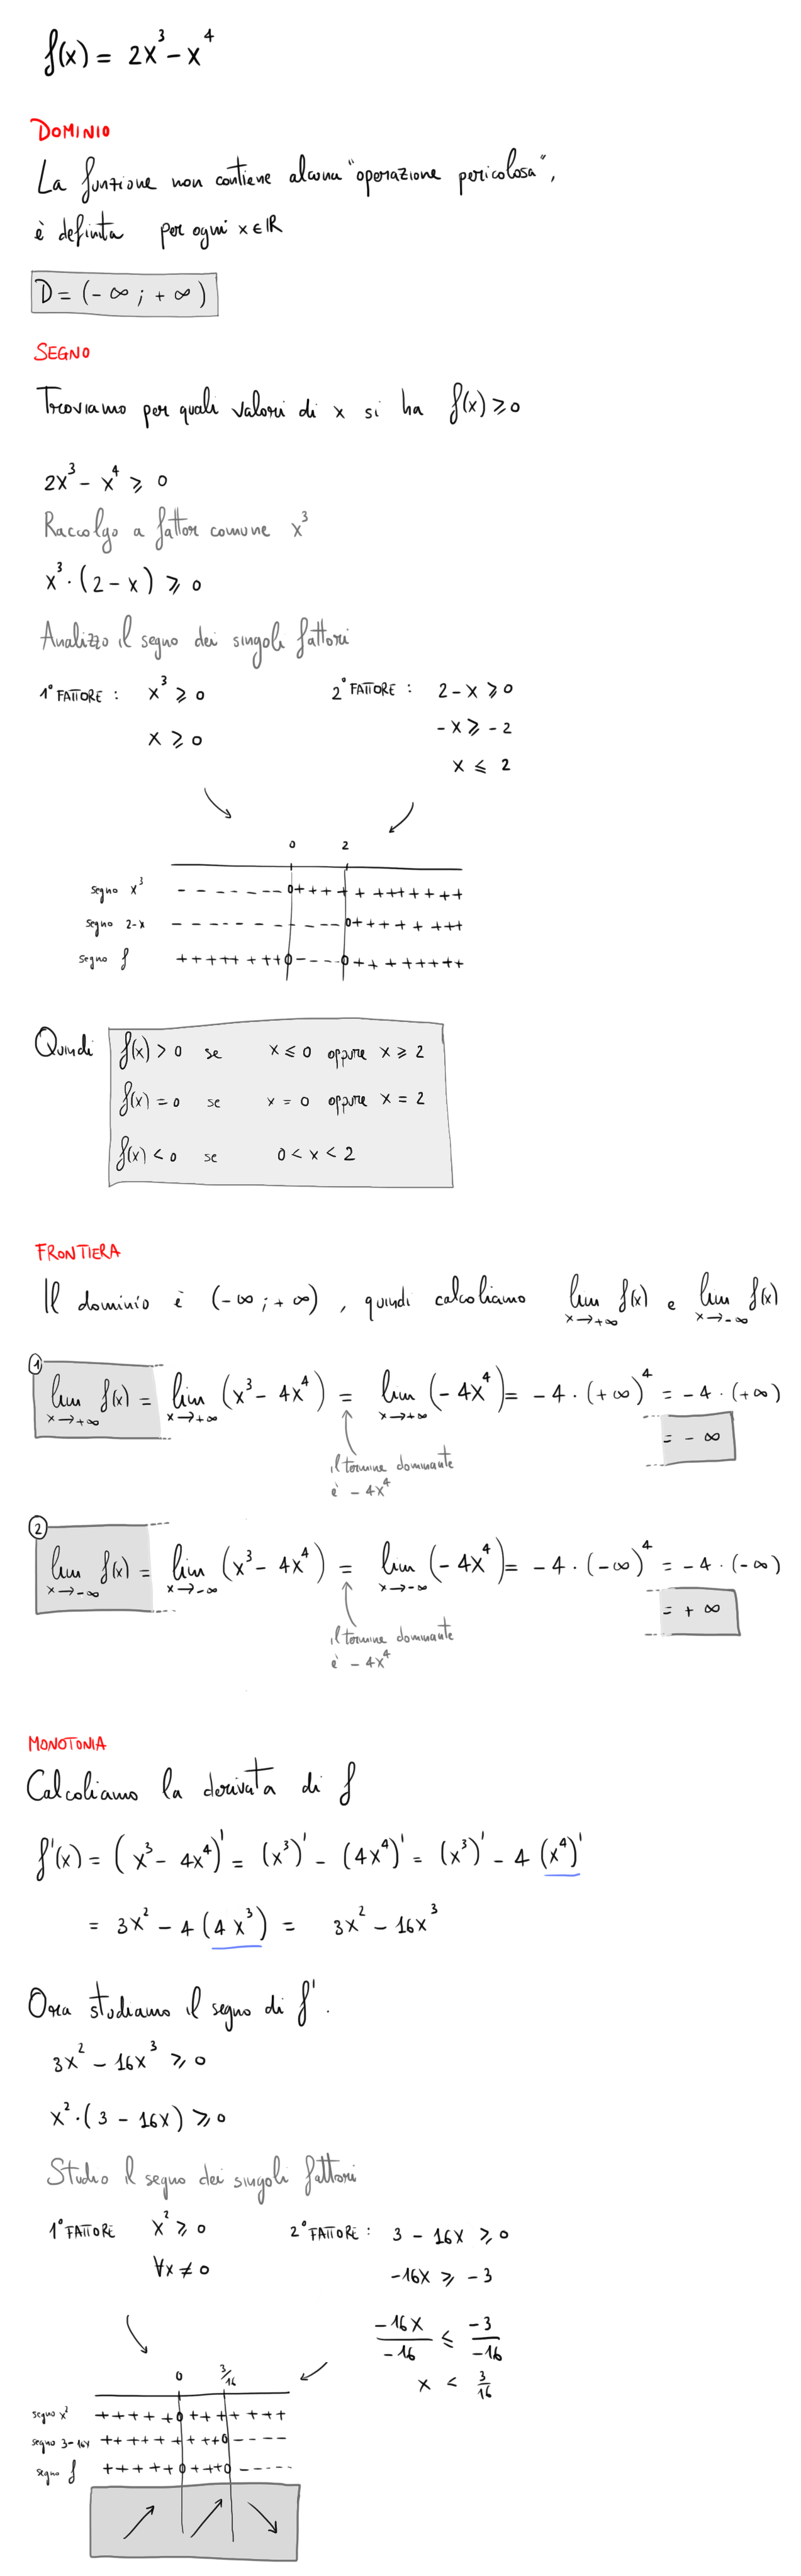 f(x) = 2x³ - x⁴
DOMINIO
La funzione non contiene alcuna "operazione pericolosa",
è definita per ogni x ∈ ℝ
D = (-∞ ; +∞)
SEGNO
Troviamo per quali valori di x si ha f(x) ⩾ 0
2x³ - x⁴ ⩾ 0
Raccolgo a fattor comune x³
x³ · (2 - x) ⩾ 0
Analizzo il segno dei singoli fattori
1° FATTORE : x³ ⩾ 0 2° FATTORE : 2 - x ⩾ 0
x ⩾ 0 -x ⩾ -2
x ⩽ 2
0 2
segno x³ - - - - - - - - 0 + + + + + + + + + + + +
segno 2-x - - - - - - - - - - - - 0 + + + + + + + +
segno f + + + + + + + + 0 - - - - 0 + + + + + + + + +
Quindi f(x) > 0 se x ⩽ 0 oppure x ⩾ 2
f(x) = 0 se x = 0 oppure x = 2
f(x) < 0 se 0 < x < 2
FRONTIERA
Il dominio è (-∞ ; +∞) , quindi calcoliamo lim x→+∞ f(x) e lim x→-∞ f(x)
① lim x→+∞ f(x) = lim x→+∞ (x³ - 4x⁴) = lim x→+∞ (-4x⁴) = -4 · (+∞)⁴ = -4 · (+∞)
= -∞
il termine dominante
è -4x⁴
② lim x→-∞ f(x) = lim x→-∞ (x³ - 4x⁴) = lim x→-∞ (-4x⁴) = -4 · (-∞)⁴ = -4 · (-∞)
= +∞
il termine dominante
è -4x⁴
MONOTONIA
Calcoliamo la derivata di f
f'(x) = (x³ - 4x⁴)' = (x³)' - (4x⁴)' = (x³)' - 4 (x⁴)'
= 3x² - 4 (4x³) = 3x² - 16x³
Ora studiamo il segno di f'.
3x² - 16x³ ⩾ 0
x² · (3 - 16x) ⩾ 0
Studio il segno dei singoli fattori
1° FATTORE x² ⩾ 0 2° FATTORE : 3 - 16x ⩾ 0
∀x ≠ 0 -16x ⩾ -3
-16x/-16 ⩽ -3/-16
x < 3/16
0 3/16
segno x² + + + + + + 0 + + + + + + + +
segno 3-16x + + + + + + + + + + 0 - - - -
segno f + + + + + + 0 + + + + 0 - - - - -